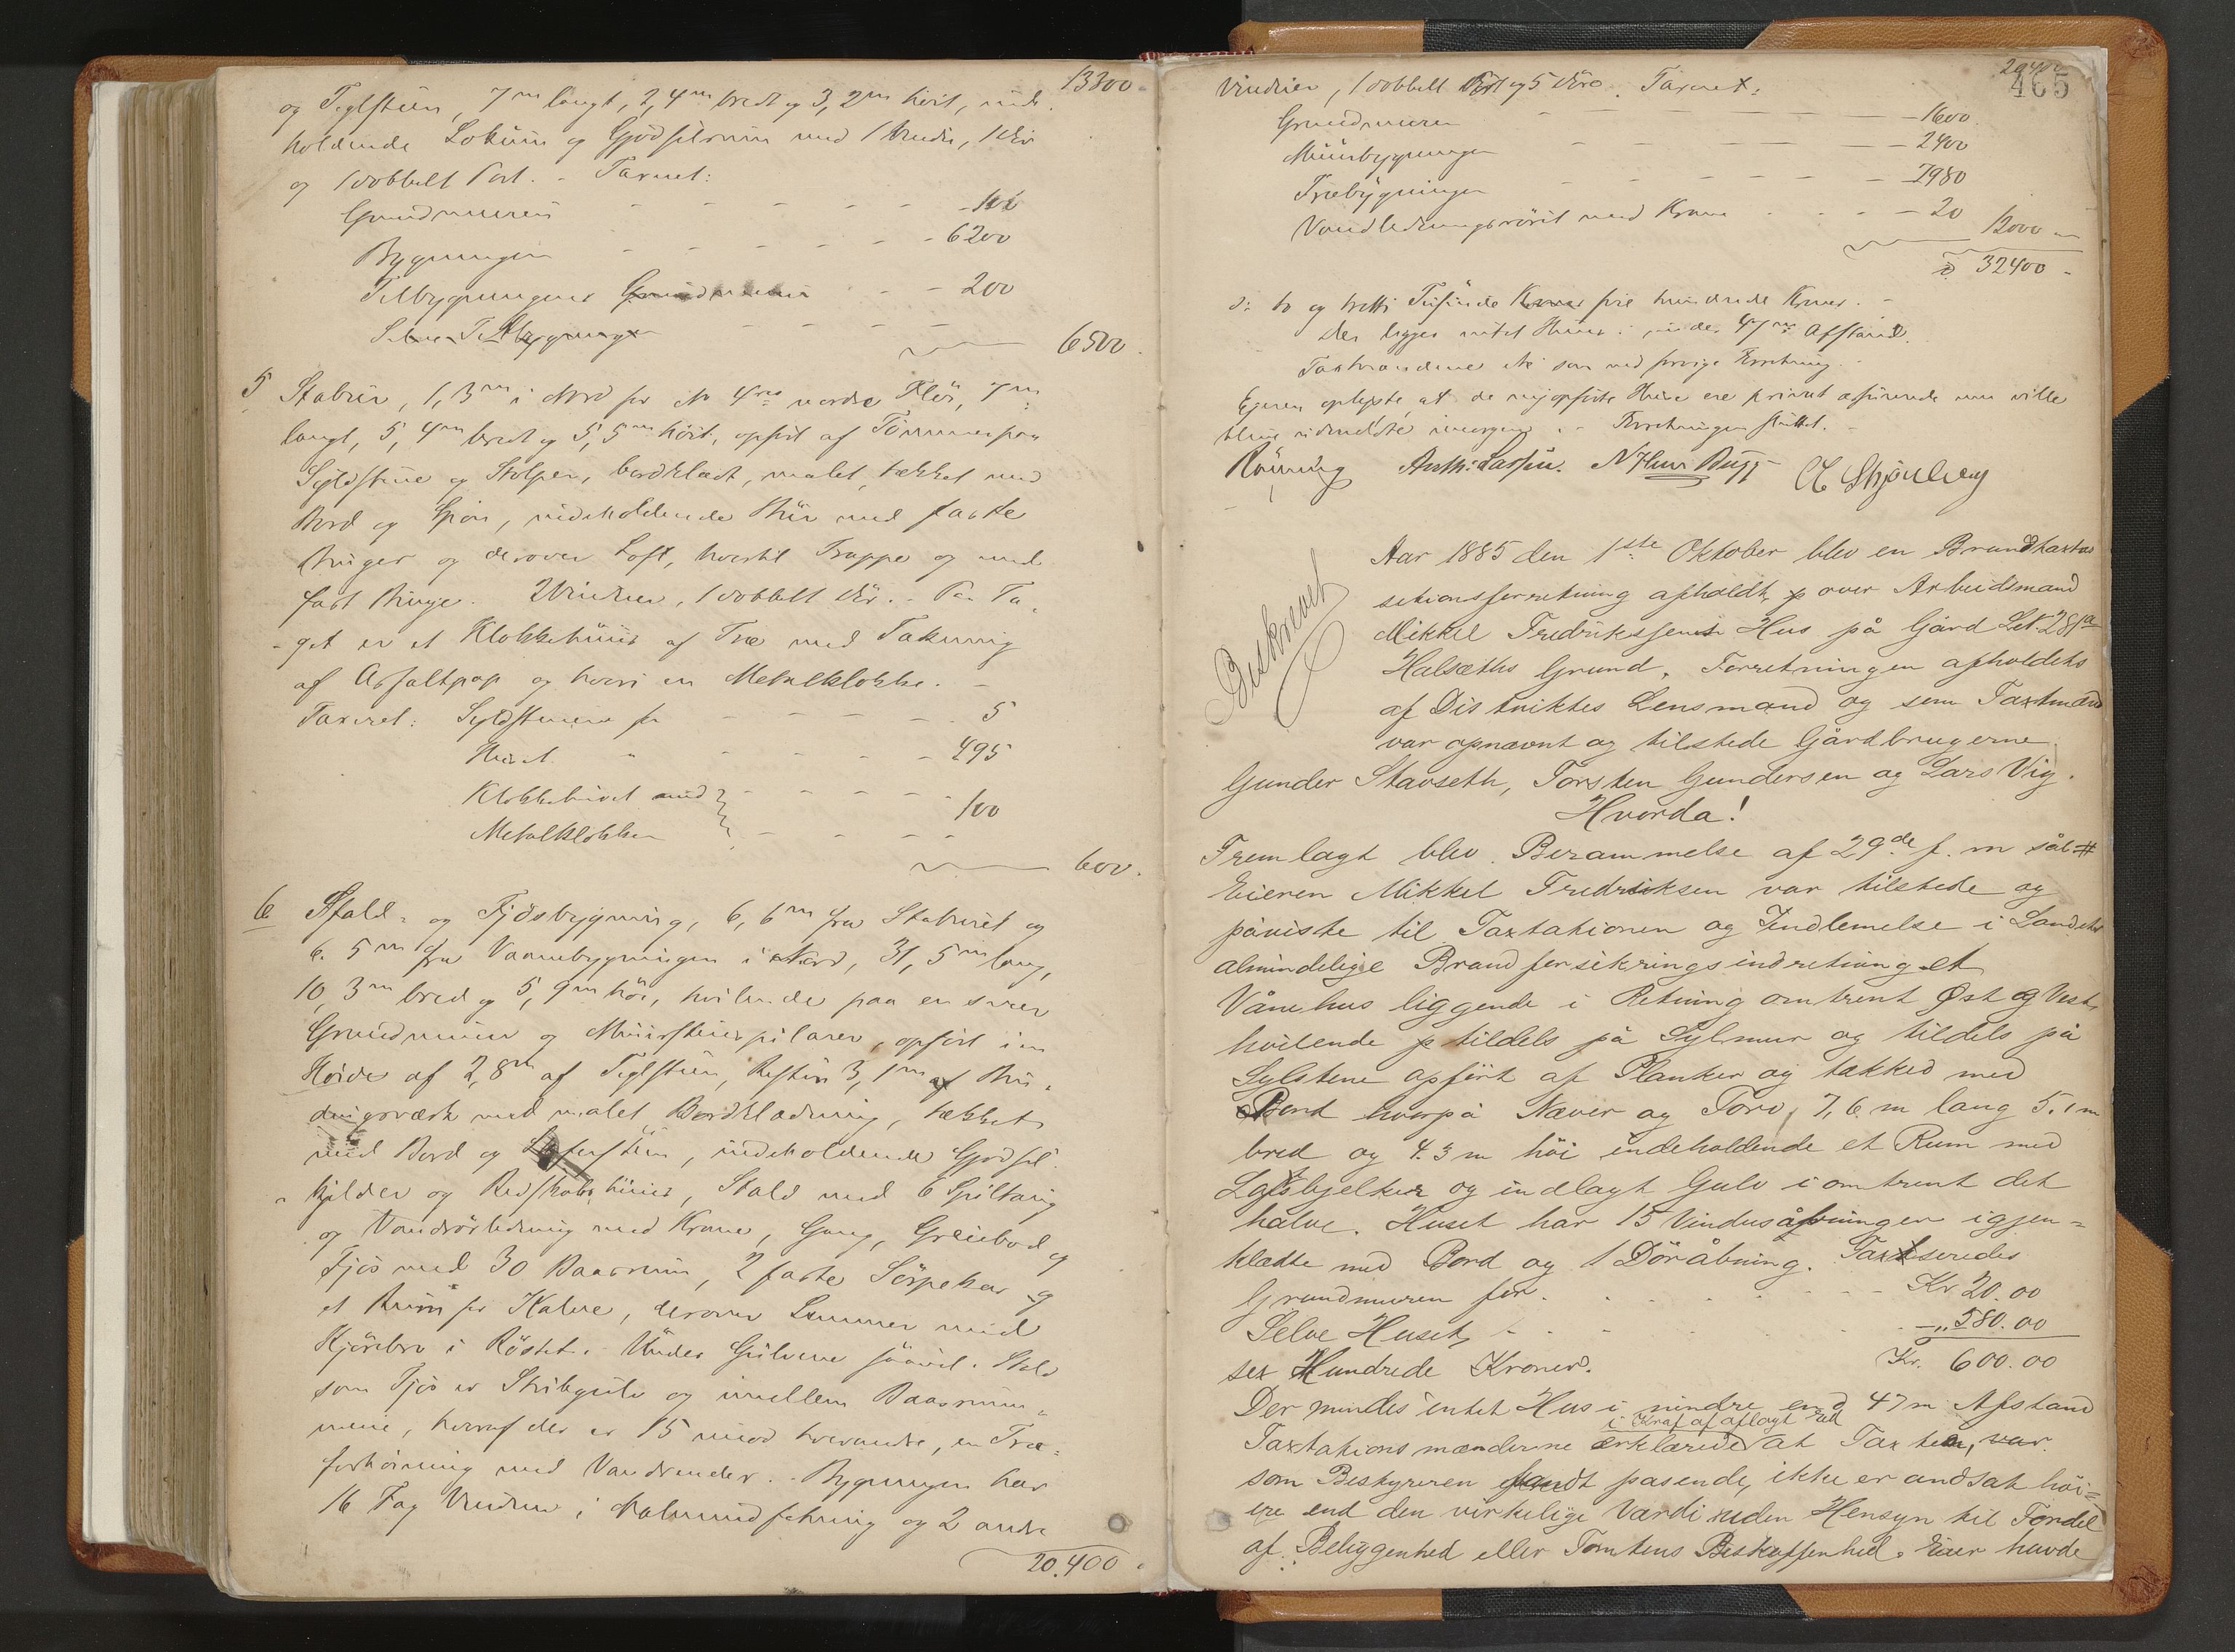 13300.
og Teglsteen, 7m langt, 2,4m bredt og 3,2m höit, inde-
holdende Lokum og Gjödselrum med 1 Vindu, 1 Dör
og 1 dobbelt Port. - Taxeret:
Grundmuren - - - - - - 100
Bygningen - - - - - - 6200
Tilbygningens Grundmuur - - - 200
Selve Tilbygningen - - - -
6500.
5 Stabur, 1,3m i Nord for No 4res nordre Flöi, 7m
langt, 5,4m bredt og 5,5m höit, opfört af Tömmer paa
Syldstene og Stolper, bordklædt, malet, tækket med
Bord og Spon, indeholdende Bur med faste
Binger og derover Loft, hvortil Trappe og med
fast Binge. 2 Vinduer, 1 dobbelt Dör. - Paa Ta-
get er et Klokkehuus af Træ med Takning
af Asfaltpap og hvori en Metalklokke. -
Taxeret: Syldstenene for - - - - 5
Huset " - - - - 495
Klokkehuset med - - - - 100
Metalklokken - - - -
600.
6 Stald- og Fjösbygning, 6,6m fra Staburet og
6.5m fra Vaanebygningen i Nord, 31,5m lang,
10,3m bred og 5,9m höi, hvilende paa en svær
Grundmuur og Muursteenspilarer, opfört i en
Höide af 2,8m af Teglsteen, Resten 3,1m af Bin-
dingsværk med malet Bordklædning, tækket
med Bord og steen, indeholdende Gjödsel-
kjelder og Redskabshuus, Stald med 6 Spiltaug
og Vandrörledning med Krane, Gang, Greiebod og
Fjös med 30 Baasrum, 2 faste Sörpekar og
et Rum for Kalve, derover Lemmer med
Kjörebro i Röstet. Under Gulvene saavel i Stald
som Fjös er Stubgulv og imellem Baasrum-
mene, hvoraf der er 15 mod hverandre, en Træ-
forhöining med Vandrender. - Bygningen har
16 Fag Vinduer i Malmindfatning og 2 andre
20.400.
20400
465
Vinduer, 1 dobbelt Port og 5 Döre. Taxeret:
Grundmuren - - - - - - 1600.
Muurbygningen - - - - - 2400
Træbygningen - - - - - 7980
Vandledningsröret med Krane - - - - 20
12000 -
32400 -
d: to og tretti Tusinde Kroner fire hundrede Kroner. -
Der ligger intet Huus i under 47m Afstand.
Taxtmændene etc som ved forrige Forretning.
Egeren oplyste, at de nyopförte Huse ere privat assurerede men ville
blive udmeldte imorgen. - Forretningen sluttet. -
Rönning Anth: Larsen. N Huus Bugge C Skjönberg
Beskrevet
Aar 1885 den 1ste Oktober blev en Brandtaxta
sationsforretning afholdt p over Arbeidsmand
Mikkel Fredriksens Hus på Gård Let. 281a
Halsæths Grund. Forretningen afholdets
af Distriktes Lensmand og som Taxtmænd
var opnævnt og tilstede Gårdbrugerne
Gunder Stavseth, Torsten Gundersen og Lars Vig.
Hvorda!
Fremlagt blev Berammelse af 29de f. m sål #
Eieren Mikkel Fredriksen var tilstede og
påviste til Taxtationen og Indlemelse i Landets
almindeligie Brandforsikringsindretning et
Vånehus liggende i Retning omtrent Øst og Vest,
hvilende p tildels på Sylmur og tildels på
Sylstene opfört af Planker og tækked med
Bord hvorpå Næver og Torv, 7,6 m lang 5.1 m
bred og 4.3 m höi indeholdende et Rum med
Loftsbjelker og indlagt Gulv i omtrent det
halve. Huset har 15 Vindusåbninger igjen-
klædte med Bord og 1 Döråbning. Taxtseredes
Grundmuren for. - - - - - - Kr 20.00
Selve Huset, - - - - - " 580.00
sex Hundrede Kroner. Kr. 600.00
Der mindes intet Hus i mindre end 47 m Afstand
i Kraf af aflagt Ed
Taxtationsmænderne erklærede at Taxten, var
som Beskyreren fandt pasende, ikke er andsat höi-
ere end den virkelige Værdi uden Hensyn til Fordel
af Beliggenhed eller Tomtens Beskaffenhed. Eier havde